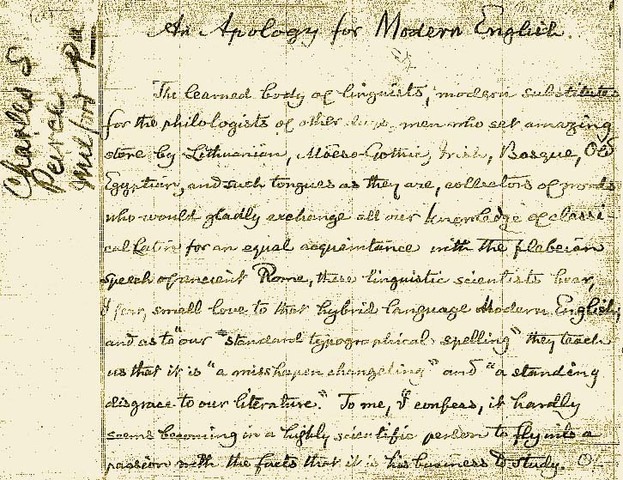 Charles S
Peirce
Milford Pa
An Apology for Modern English.
The learned body of linguists, modern substitutes
for the philologists of other days, men who set amazing
store by Lithuanian, Moeso-Gothic, Irish, Basque, Old
Egyptian, and such tongues as they are, collectors of words
who would gladly exchange all our knowledge of classi-
cal Latin for an equal acquaintance with the plebeian
speech of ancient Rome, these linguistic scientists bear,
I fear, small love to that hybrid language Modern English;
and as to our "standard typographical spelling" they teach
us that it is "a misshapen changeling" and "a standing
disgrace to our literature." To me, I confess, it hardly
seems becoming in a highly scientific person to fly into a
passion with the facts that it is his business to study.